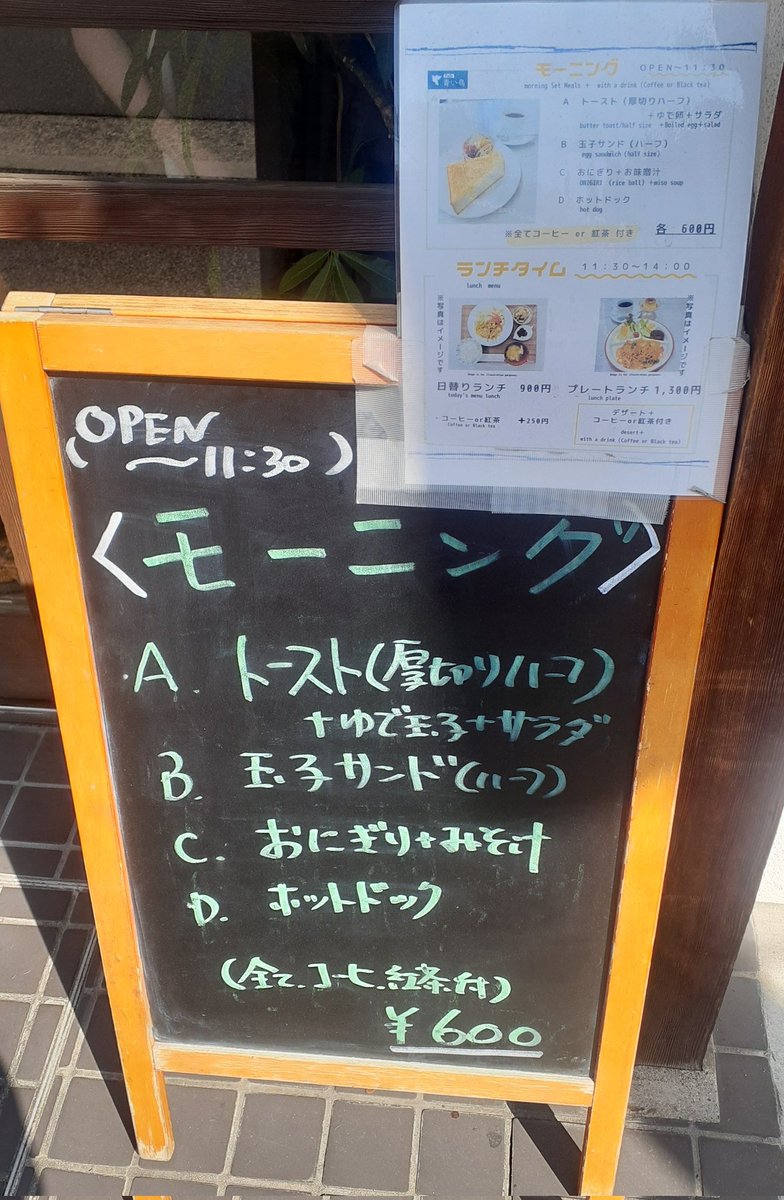 モーニング OPEN~11:30
青い鳥
morning Set Meals + with a drink (Coffee or Black tea)
A トースト(厚切りハーフ)
+ゆで卵+サラダ
butter toast/half size +Boiled egg+salad
B 玉子サンド(ハーフ)
egg sandwich (half size)
C おにぎり+お味噌汁
ONIGIRI (rice ball)+miso soup
D ホットドック
hot dog
※全てコーヒー or 紅茶 付き 各 600円
ランチタイム 11:30~14:00
lunch menu
※写真はイメージです
※写真はイメージです
日替りランチ 900円
today's menu lunch
・コーヒーor紅茶 +250円
Coffee or Black tea
プレートランチ 1,300円
lunch plate
デザート+
コーヒーor紅茶付き
desert+
with a drink (Coffee or Black tea)
(OPEN
~11:30)
<モーニング>
A. トースト(厚切りハーフ)
+ゆで玉子+サラダ
B. 玉子サンド(ハーフ)
C. おにぎり+みそ汁
D. ホットドック
(全て、コーヒ、紅茶付)
¥600